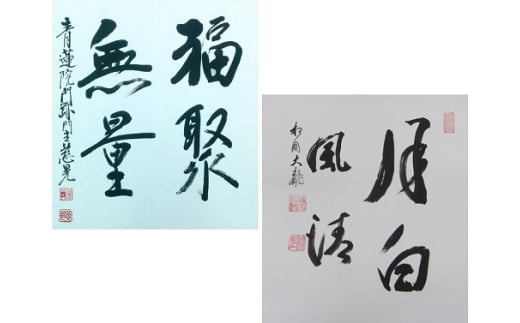 福聚
無量
青蓮院門跡門主慈晃
月白
風清
大龍